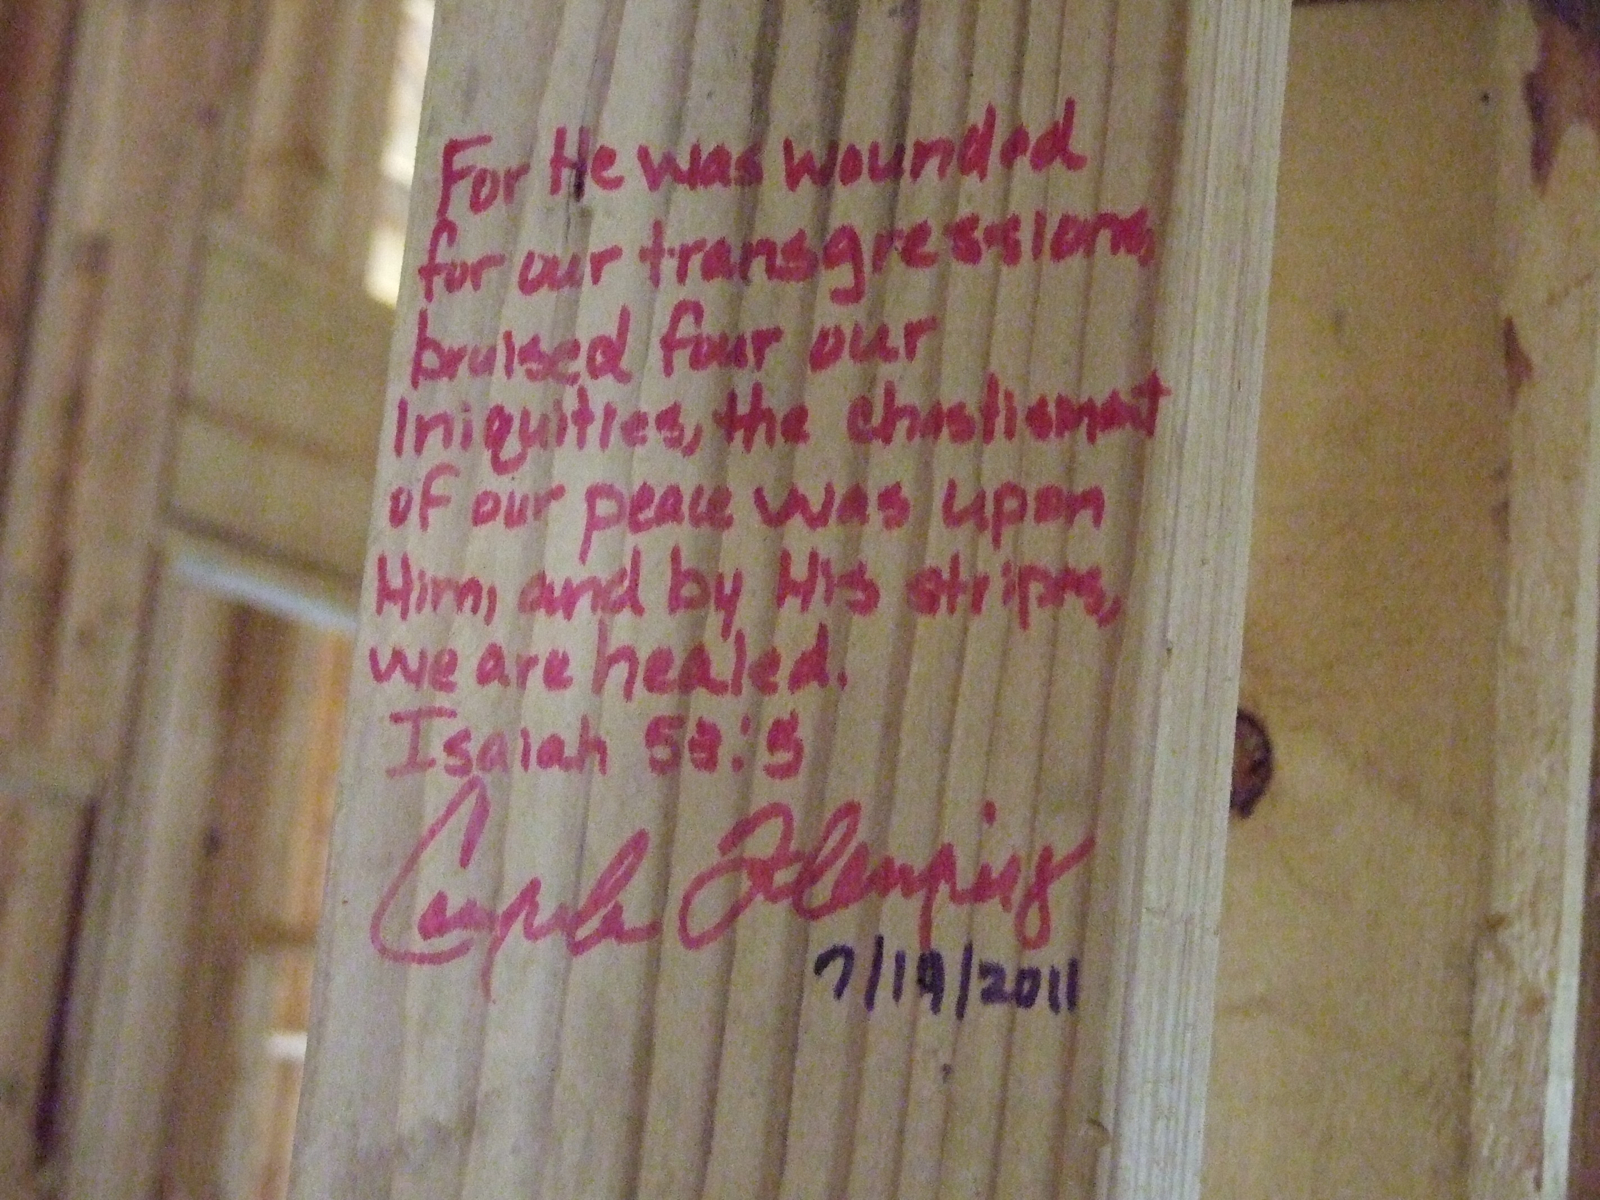 For He was wounded
for our transgressions,
bruised four our
iniquities, the chastisment
of our peace was upon
Him, and by His stripes,
we are healed.
Isaiah 53:5
7/19/2011